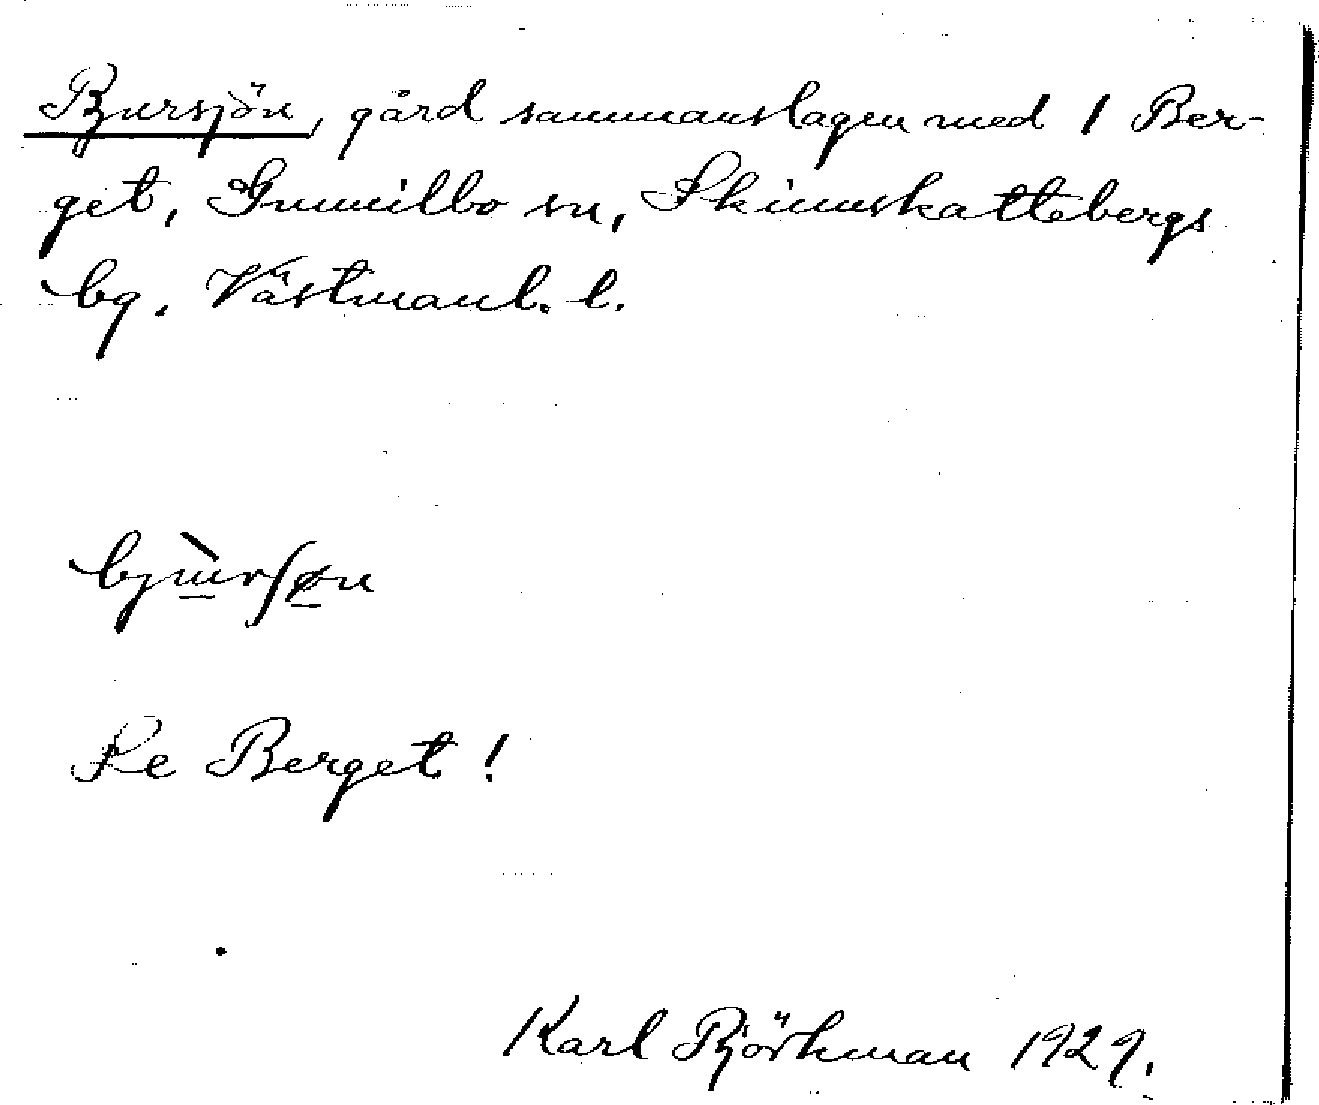 Bjursjön, gård sammanslagen med 1 Ber-
get, Gunnilbo sn, Skinnskattebergs
bg. Västmanl. l.
Se Berget!
Karl Björkman 1929.